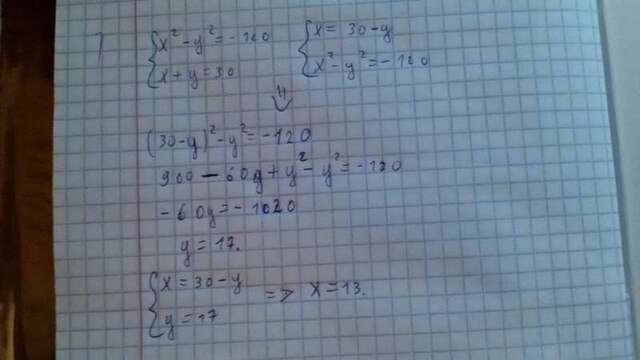 7
{ x² - y² = -120    { x = 30 - y
{ x + y = 30    { x² - y² = -120
⇓
(30 - y)² - y² = -120
900 - 60y + y² - y² = -120
-60y = -1020
y = 17.
{ x = 30 - y
{ y = 17    => x = 13.